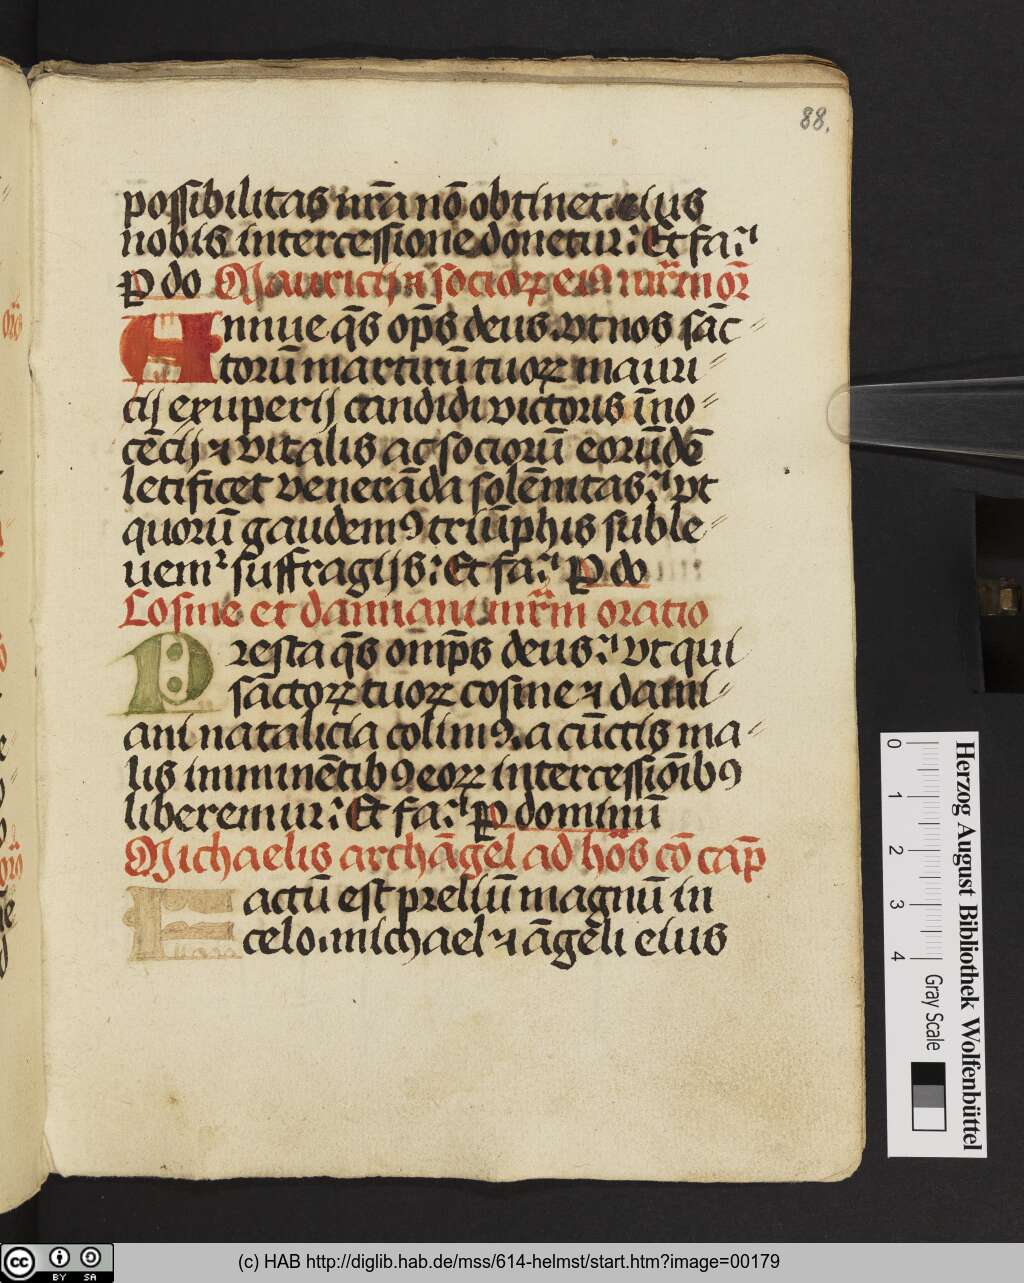 88.
possibilitas nr̄a nō obtinet. eius
nobis intercessione donetur: Et fa
P do Mauricij ⁊ socioꝝ eiꝯ mr̄m or̄
Annue q̄s op̄s deus. vt nos sāc⸗
torū martirū tuoꝝ mauri⸗
cij exuperij candidi victoris īno⸗
cēcij ⁊ vitalis ac sociorū eorūdē
letificet venerāda solēnitas: vt
quorū gaudemꝯ triūphis suble⸗
uemr suffragijs: Et fa P do
Cosme et damiani mr̄m oratio
Presta q̄s om̄ps deus: vt qui
sāctoꝝ tuoꝝ cosme ⁊ dami⸗
ani natalicia colimꝯ. a cūctis ma⸗
lis imminētibꝯ eoꝝ intercessiōibꝯ
liberemur: Et fa P dominū
Michaelis archāgel ad hōs cō cap̄
Factū est preliū magnū in
celo. michael ⁊ āgeli eius
Herzog August Bibliothek Wolfenbüttel
0 1 2 3 4 Gray Scale
cc BY SA
(c) HAB http://diglib.hab.de/mss/614-helmst/start.htm?image=00179